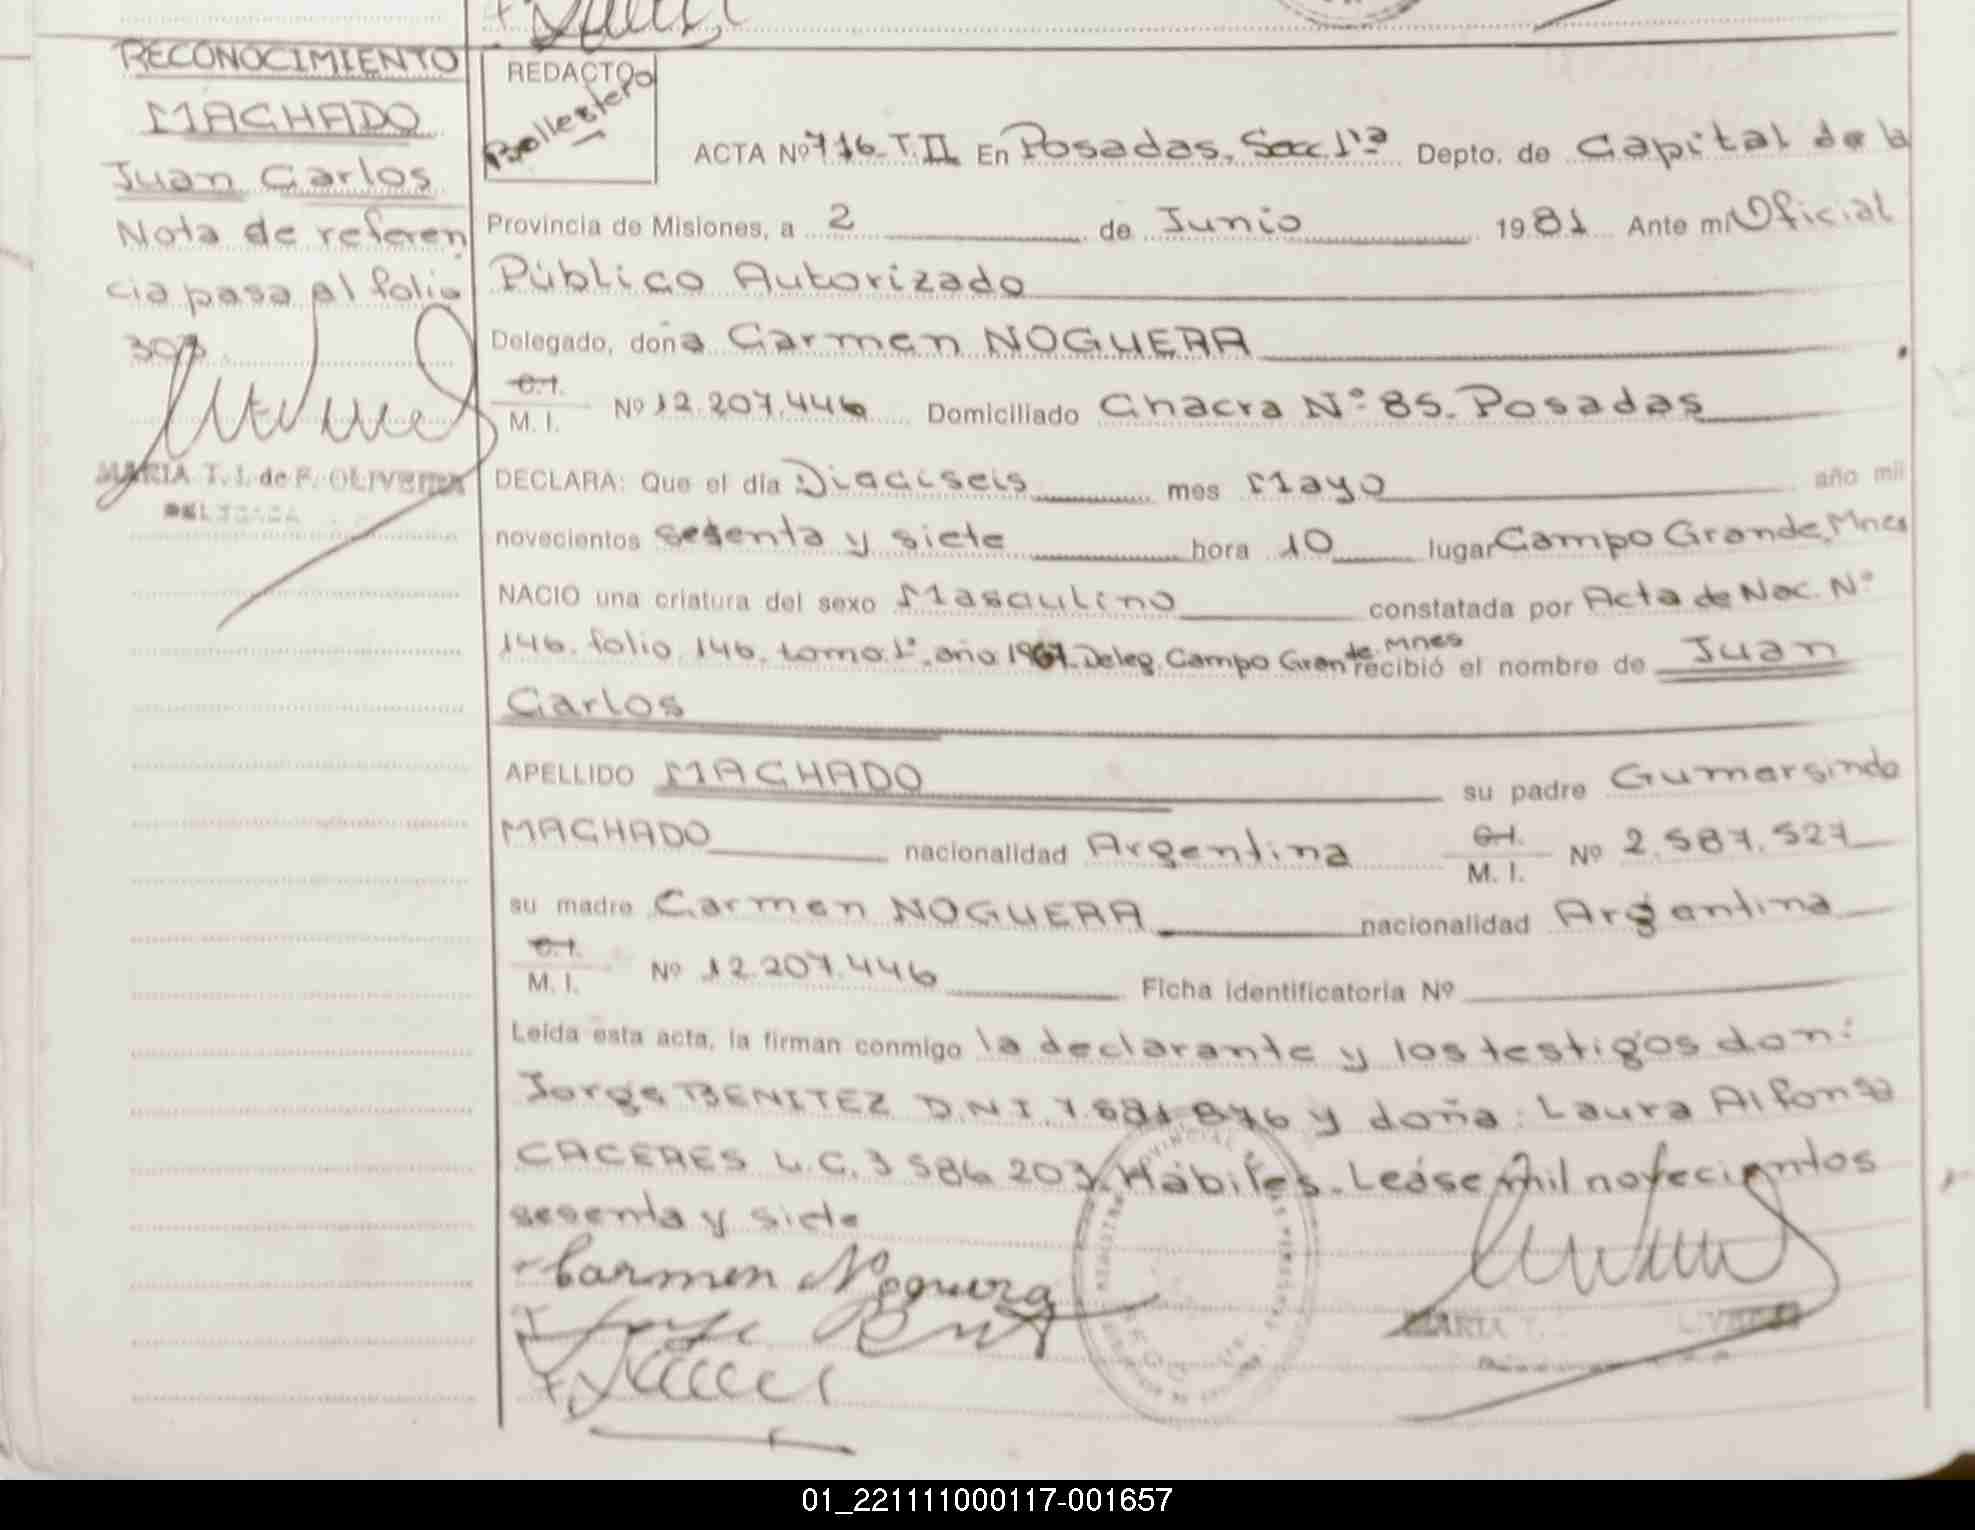 RECONOCIMIENTO
MACHADO
Juan Carlos
Nota de referen
cia pasa al folio
303
MARIA T. I. de F. OLIVEIRA
DELEGADA
REDACTO
Ballestero
ACTA Nº 716-T.II En Posadas, Secc. 1ra Depto. de Capital de la
Provincia de Misiones, a 2 de Junio 1981 Ante mi Oficial
Público Autorizado
Delegado, doña Carmen NOGUERA
C.I.
M. I. Nº 12.207.446 Domiciliado Chacra Nº 85. Posadas
DECLARA: Que el día Dieciseis mes Mayo año mil
novecientos setenta y siete hora 10 lugar Campo Grande, Mnes
NACIO una criatura del sexo Masculino constatada por Acta de Nac. Nº
146. folio 146. tomo 1º. año 1967. Deleg. Campo Grande. Mnes recibió el nombre de Juan
Carlos
APELLIDO MACHADO su padre Gumersindo
MACHADO nacionalidad Argentina C.I. M. I. Nº 2.587.527
su madre Carmen NOGUERA nacionalidad Argentina
C.I.
M. I. Nº 12.207.446 Ficha identificatoria Nº
Leida esta acta, la firman conmigo la declarante y los testigos don:
Jorge BENITEZ D.N.I. y doña: Laura Alfonsa
CACERES L.C. 3 586 203. Hábiles. Leáse mil novecientos
sesenta y siete
Carmen Noguera
MARIA T.
01_221111000117-001657